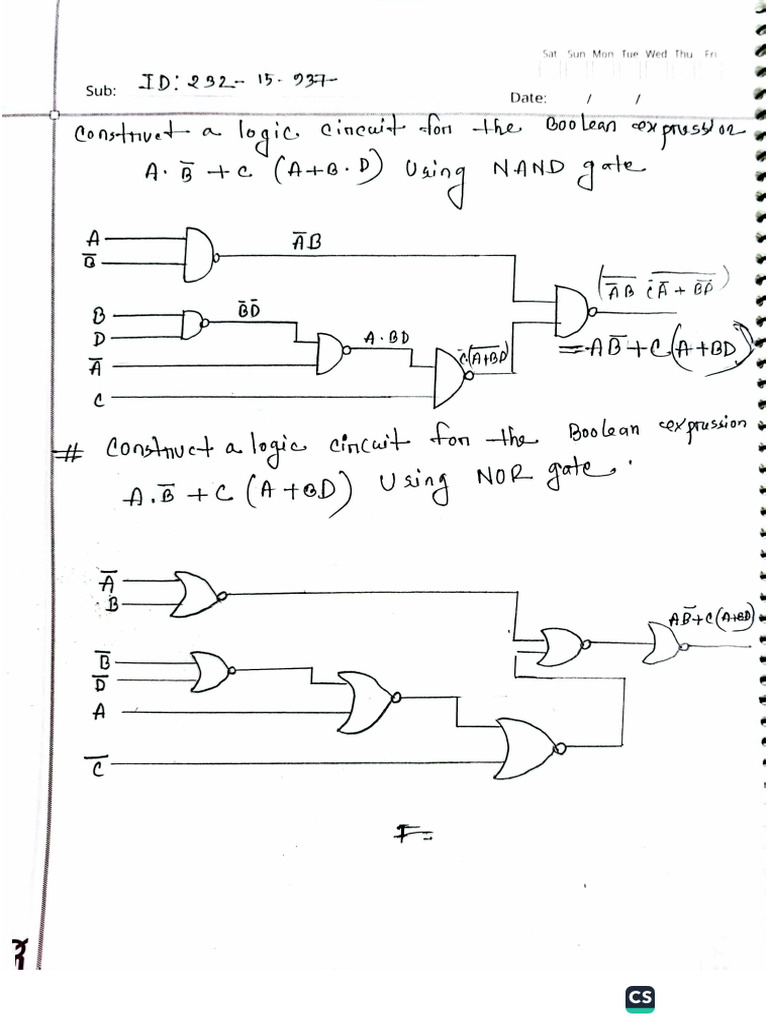 Sat Sun Mon Tue Wed Thu Fri
Sub: ID: 232-15-937
Date: / /
Construct a logic circuit for the Boolean expression
A.B̅ + C (A+B.D) Using NAND gate
A
B̅
A̅B
B
D
B̅D̅
A̅
A.BD
C
= AB̅+C(A+BD)
# Construct a logic circuit for the Boolean expression
A.B̅ + C (A+BD) Using NOR gate.
A̅
B
AB̅+C(A+BD)
B̅
D̅
A
C̅
F=
CS